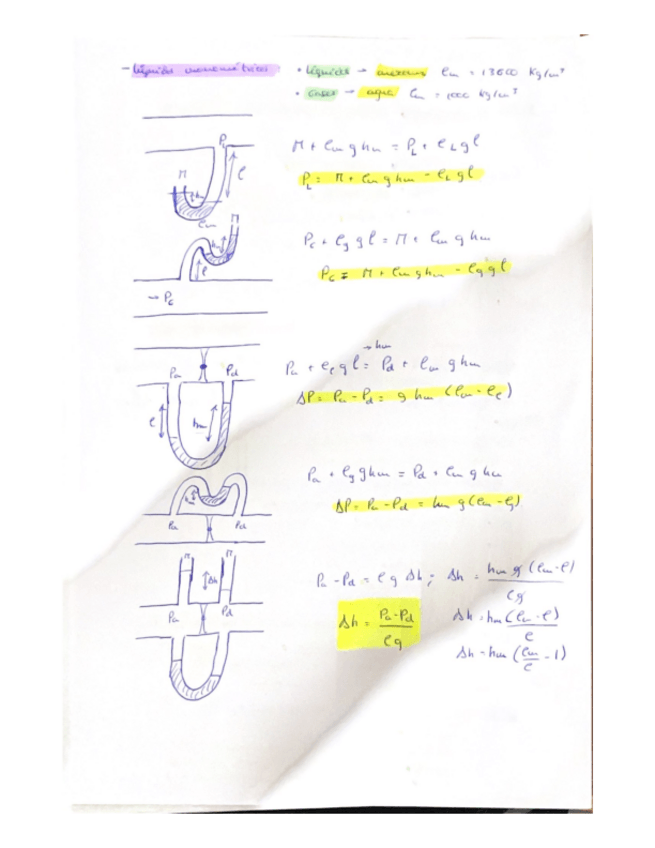 - Líquidos manométricos
• Líquidos → mercurio ρm = 13600 Kg/m³
• Gases → agua ρm = 1000 Kg/m³
PL
M
l
hm
ρm
M + ρm g hm = PL + ρL g l
PL = M + ρm g hm - ρL g l
M
hm
l
→ PG
PG + ρg g l = M + ρm g hm
PG = M + ρm g hm - ρg g l
Pa
Pd
l
hm
→ hm
Pa + ρL g l = Pd + ρm g hm
ΔP = Pa - Pd = g hm (ρm - ρL)
hm
Pa
Pd
Pa + ρg g hm = Pd + ρm g hm
ΔP = Pa - Pd = hm g (ρm - ρg)
M
M
Δh
Pa
Pd
Pa - Pd = ρ g Δh; Δh = hm g (ρm - ρ) / ρg
Δh = Pa - Pd / ρg
Δh = hm (ρm - ρ) / ρ
Δh = hm (ρm / ρ - 1)